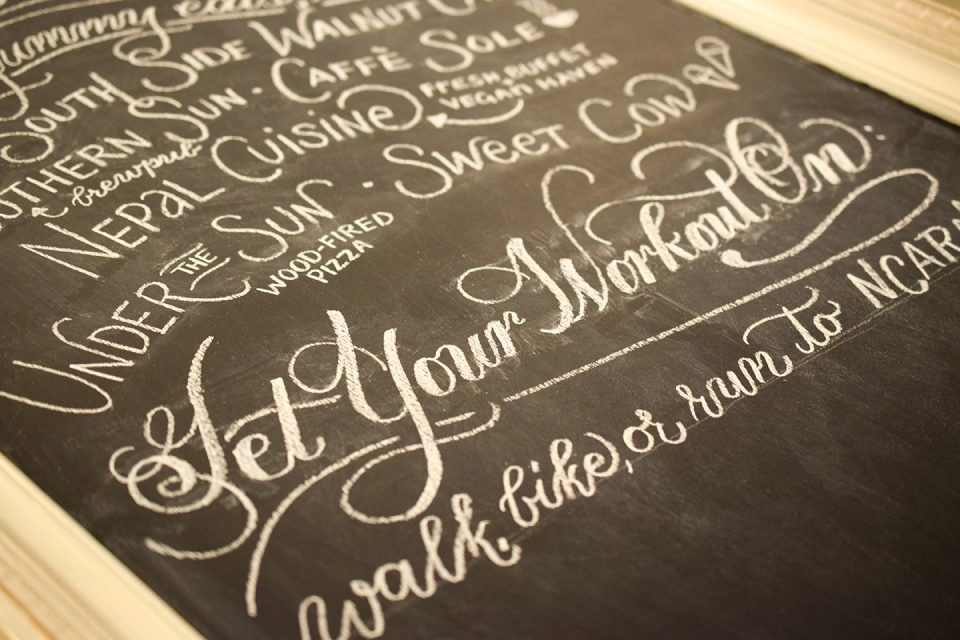 yummy
SOUTH SIDE WALNUT C
UTHERN SUN · CAFFÈ SOLE
brewpub
NEPAL CUISINE
FRESH BUFFET
VEGAN HAVEN
UNDER THE SUN · SWEET COW
WOOD-FIRED
PIZZA
Get Your Workout On:
walk, bike, or run to NCAR